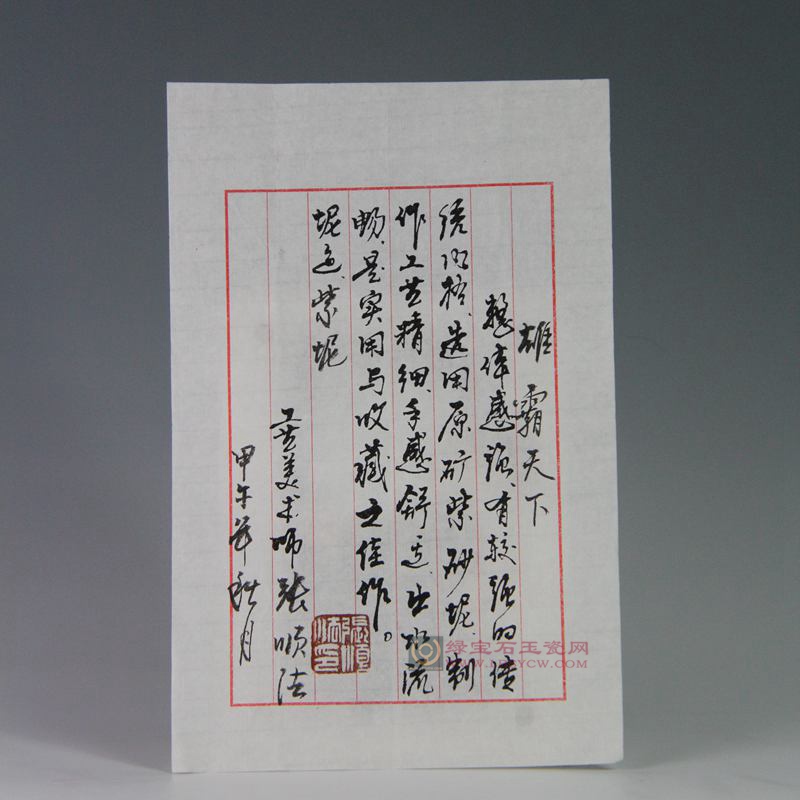 雄霸天下
整体感强、有较强的传
统风格、选用原矿紫砂坭、制
作工艺精细、手感舒适、出水流
畅、是实用与收藏之佳作。
坭色、紫坭
工艺美术师张顺法
甲午年秋月
張順法印
绿宝石玉瓷网